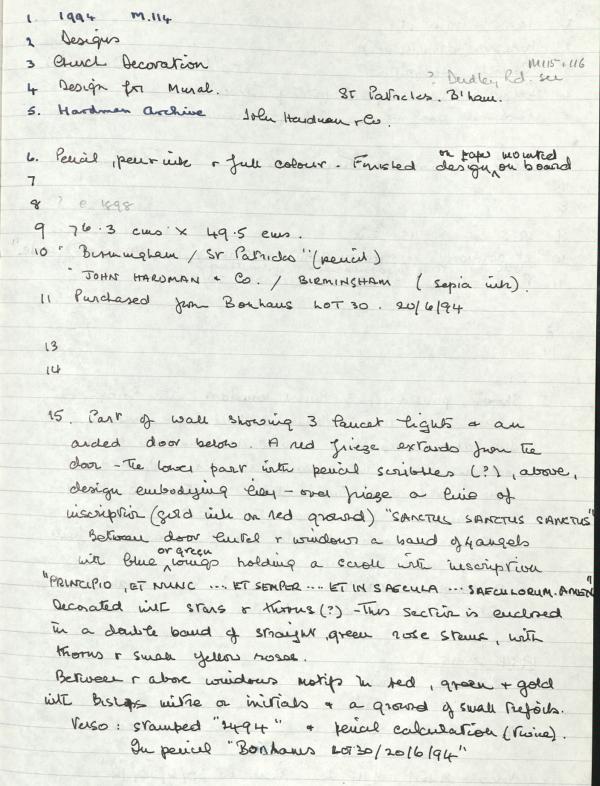 1 1994 M.114
2 Designs
3 Church Decoration M115+116
? Dudley Rd. see
4 Design for Mural. St Patricks. B'ham.
5. Hardman Archive John Hardman & Co.
6. Pencil, pen & ink & full colour. Finished design on paper mounted on board
7
8 ? c 1898
9 76.3 cms × 49.5 cms.
10 "Birmingham / St Patricks" (pencil)
"JOHN HARDMAN & Co. / BIRMINGHAM (sepia ink).
11 Purchased from Bonhams LOT 30. 20/6/94
13
14
15. Part of wall showing 3 lancet lights & an
arched door below. A red frieze extends from the
door - the lower part with pencil scribbles (?), above,
design embodying lilies - over frieze a line of
inscription (gold ink on red ground) "SANCTUS SANCTUS SANCTUS"
Between door lintel & windows a band of 4 angels
with blue or green wings holding a scroll with inscription
"PRINCIPIO, ET NUNC .... ET SEMPER .... ET IN SAECULA ... SAECULORUM. AMEN"
Decorated with stars & thorns (?) - This section is enclosed
in a double band of straight, green rose stems, with
thorns & small yellow roses.
Between & above windows motifs in red, green & gold
with Bishops mitre or initials & a ground of small trefoils.
Verso: stamped "2494" & pencil calculation (twice).
In pencil "Bonhams LOT30/20/6/94"